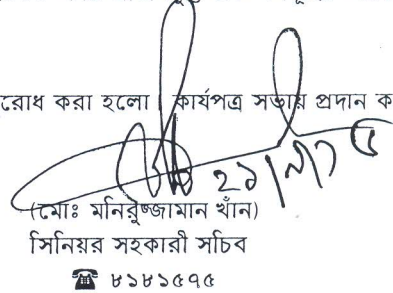 রোধ করা হলো। কার্যপত্র সভায় প্রদান ক
(মোঃ মনিরুজ্জামান খাঁন)
সিনিয়র সহকারী সচিব
☎ ৮১৮১৫৭৫